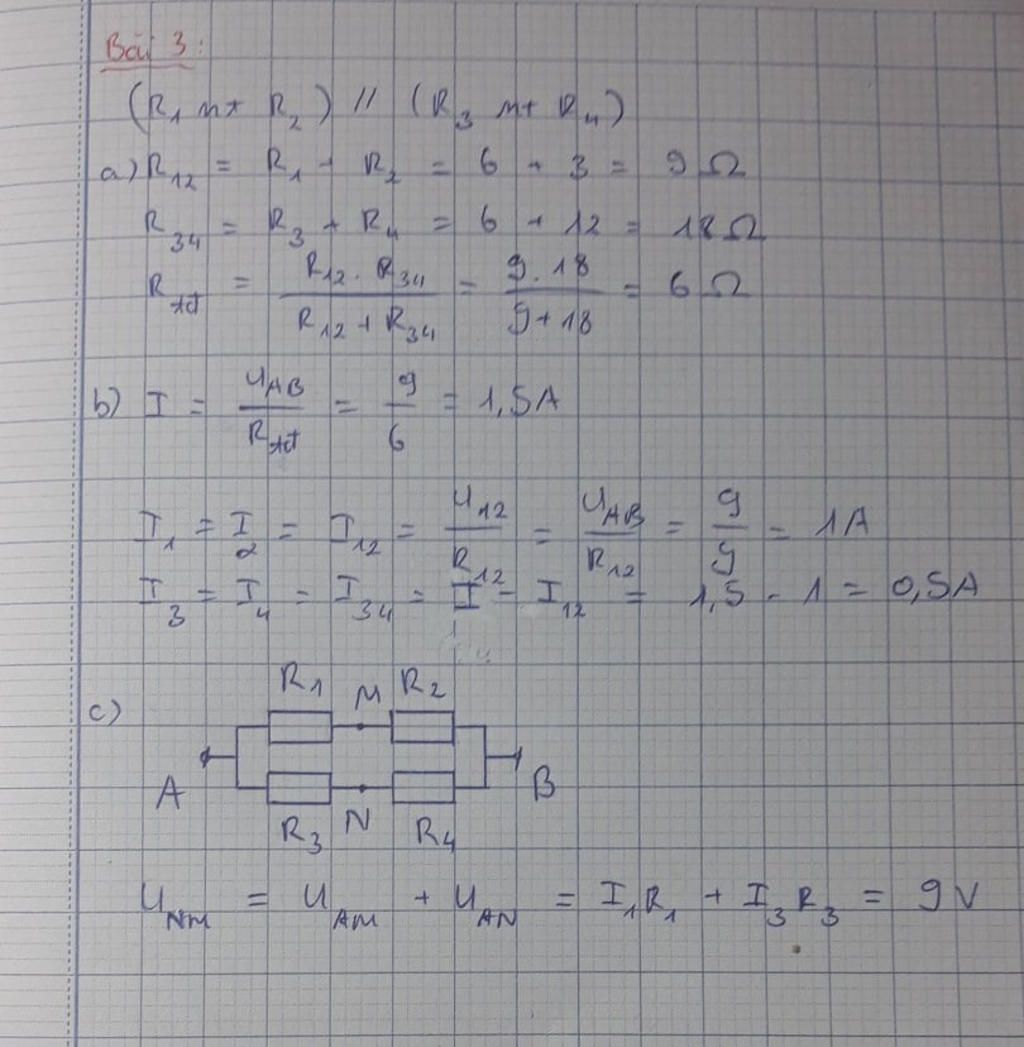 Bài 3:
(R₁ nt R₂) // (R₃ nt R₄)
a) R₁₂ = R₁ + R₂ = 6 + 3 = 9 Ω
R₃₄ = R₃ + R₄ = 6 + 12 = 18 Ω
R_tđ = (R₁₂ . R₃₄) / (R₁₂ + R₃₄) = (9 . 18) / (9 + 18) = 6 Ω
b) I = U_AB / R_tđ = 9 / 6 = 1,5A
I₁ = I₂ = I₁₂ = U₁₂ / R₁₂ = U_AB / R₁₂ = 9 / 9 = 1A
I₃ = I₄ = I₃₄ = I - I₁₂ = 1,5 - 1 = 0,5A
c)
R₁ M R₂
A B
R₃ N R₄
U_NM = U_AM + U_AN = I₁R₁ + I₃R₃ = 9V